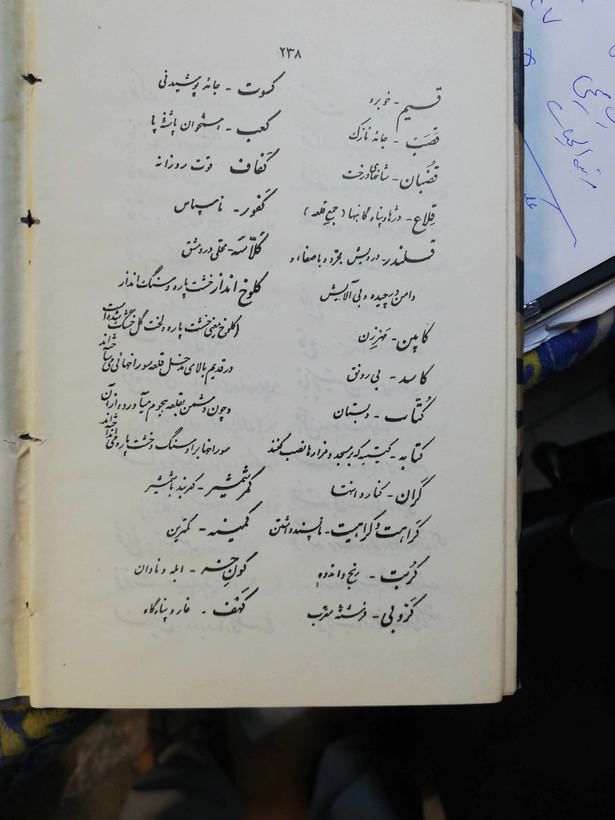 ۲۳۸
قسیم - خوبرو
قَصَب - جامهٔ نازک
قُضبان - شاخه‌های درخت
قِلاع - دژها و پناه گاهها (جمع قلعه)
قلندر - درویش مجرد و باصفا، و
دامن درچیده و بی آلایش
کابین - مهر زن
کاسد - بی رونق
کُتّاب - دبستان
کتابه - کتیبه که بر مسجد و مزارها نصب کنند
کَران - کنار و انتها
کَراهت و کراهیت - ناپسند داشتن
کُربت - رنج و اندوه
کَرّوبی - فرشتهٔ مقرب
کسوت - جامهٔ پوشیدنی
کعب - استخوان پاشنهٔ پا
کَفاف قوت روزانه
کَفور - ناسپاس
کلّاسه - محلی در دمشق
کلوخ انداز خشت پاره و سنگ انداز
(کلوخ یعنی خشت پاره و لخت گل خشک شده است
در قدیم بالای مدخل قلعه سوراخهائی می‌ساخته‌اند
و چون دشمن بقلعه هجوم میآورد از آن
سوراخها بر او سنگ و خشت پاره می‌انداخته‌اند
کمر شمشیر - کمربند با شمشیر
کمینه - کمترین
کون خر - ابله و نادان
کهف - غار و پناه گاه